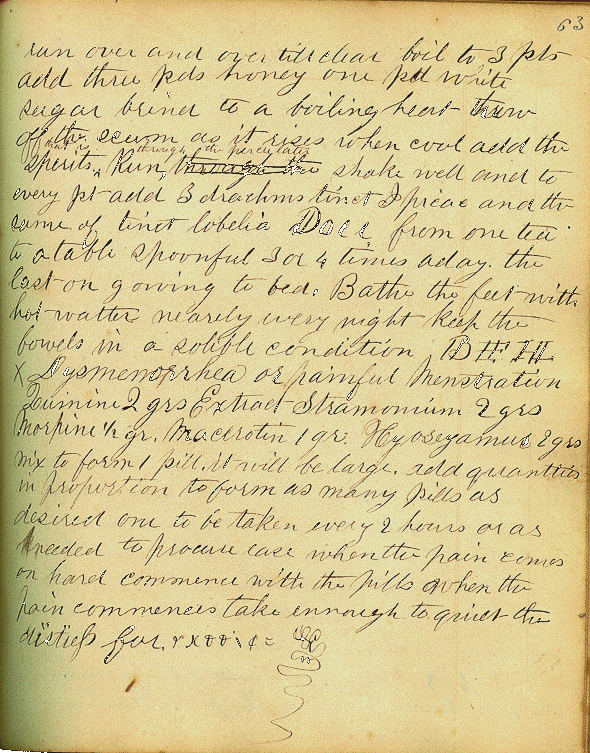 63
run over and over till clear boil to 3 pts
add three pds honey one pd white
sugar brind to a boiling heat throw
off the scum as it rises when cool add the
that is through the perculater
Sperits, Run, through the shake well and to
every pt add 3 drachms tinct Ipicac and the
same of tinct lobelia Dose from one tea
to a table spoonful 3 or 4 times a day. the
last on gowing to bed. Bathe the feet with
hot watter nearely every night keep the
bowels in a soluble condition
X Dysmenorrhea or painful Menstration
Quinine 2 grs Extract Stramonium 2 grs
Morpine ½ gr. Macrotin 1 gr. Hyoscyamus 2 grs
mix to form 1 pill. it will be large. add quantities
in proportion to form as many pills as
desired one to be taken every 2 hours or as
kneeded to procure ease when the pain comes
on hard commence with the pills when the
pain commences take ennough to quiet the
distress for.